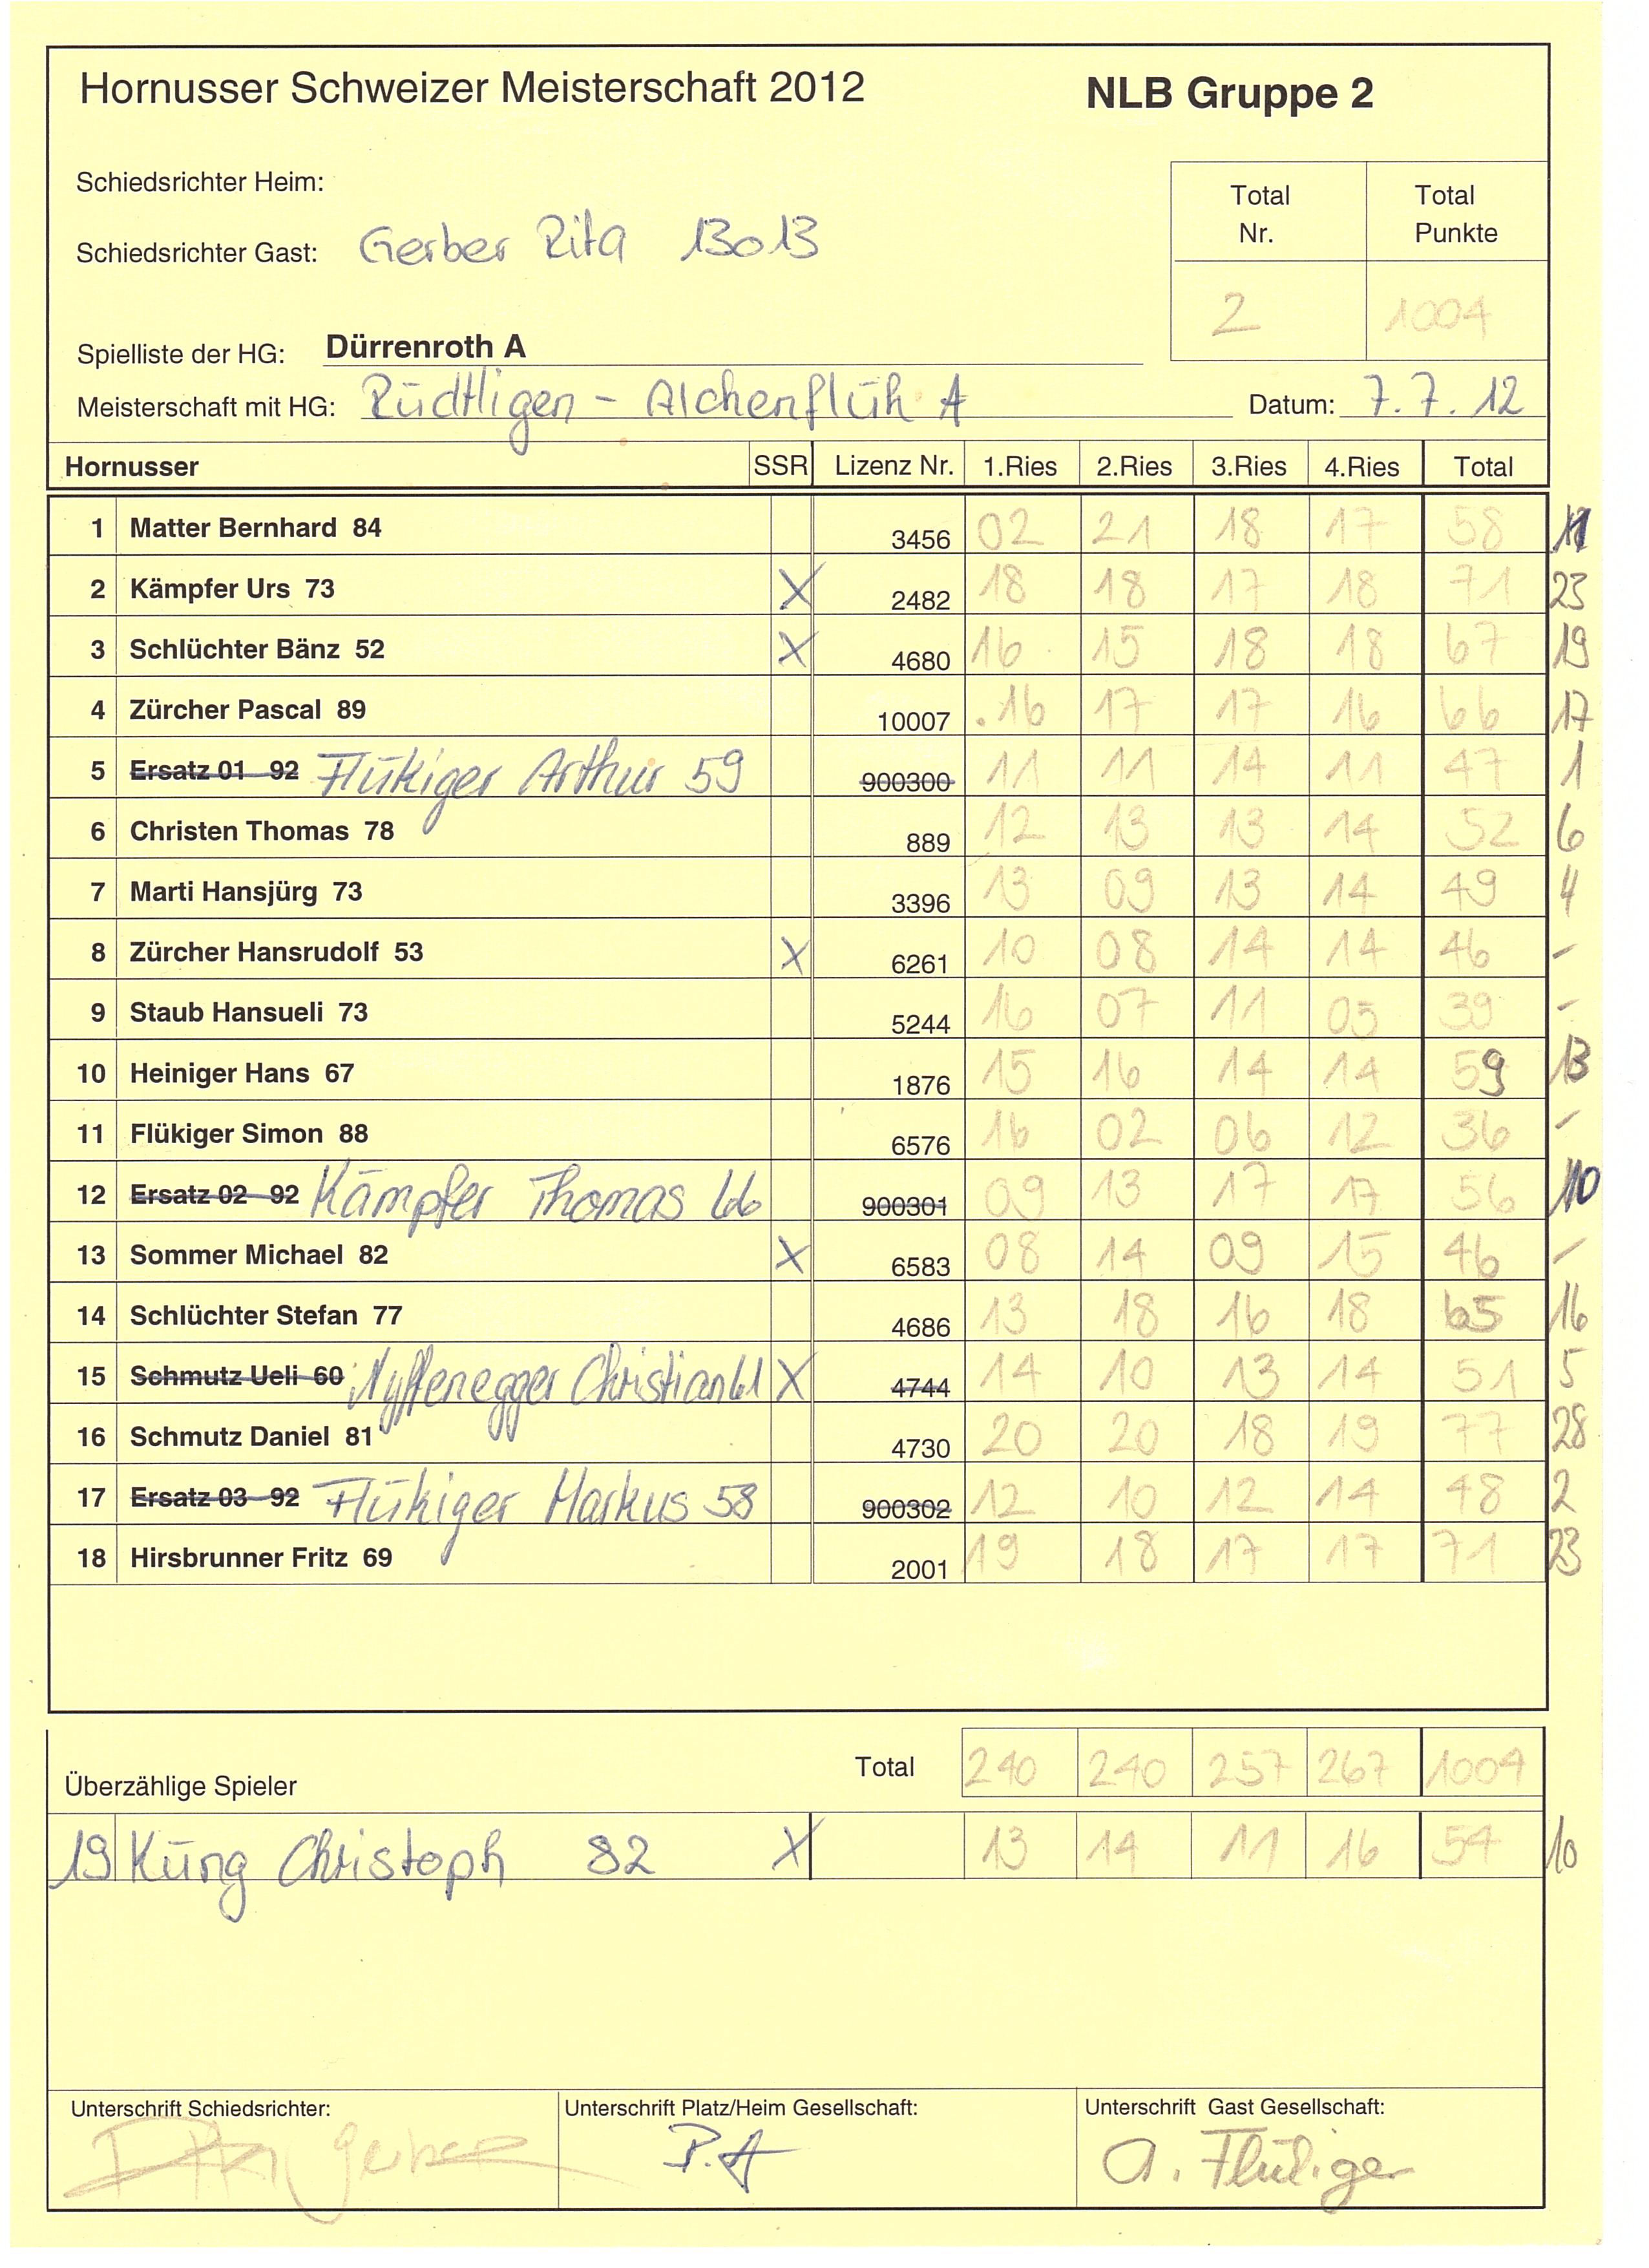 Hornusser Schweizer Meisterschaft 2012 NLB Gruppe 2
Schiedsrichter Heim:
Total Nr. Total Punkte
Schiedsrichter Gast: Gerber Rita 13013
2 1004
Spielliste der HG: Dürrenroth A
Meisterschaft mit HG: Rüdtligen - Alchenflüh A Datum: 7.7.12
Hornusser SSR Lizenz Nr. 1.Ries 2.Ries 3.Ries 4.Ries Total
1 Matter Bernhard 84 3456 02 21 18 17 58
2 Kämpfer Urs 73 X 2482 18 18 17 18 71 23
3 Schlüchter Bänz 52 X 4680 16 15 18 18 67 19
4 Zürcher Pascal 89 10007 16 17 17 16 66 17
5 Ersatz 01 92 Flükiger Arthur 59 900300 11 11 14 11 47 1
6 Christen Thomas 78 889 12 13 13 14 52 6
7 Marti Hansjürg 73 3396 13 09 13 14 49 4
8 Zürcher Hansrudolf 53 X 6261 10 08 14 14 46 -
9 Staub Hansueli 73 5244 16 07 11 05 39 -
10 Heiniger Hans 67 1876 15 16 14 14 59 13
11 Flükiger Simon 88 6576 16 02 06 12 36 -
12 Ersatz 02 92 Kämpfer Thomas 66 900301 09 13 17 17 56 10
13 Sommer Michael 82 X 6583 08 14 09 15 46 -
14 Schlüchter Stefan 77 4686 13 18 16 18 65 16
15 Schmutz Ueli 60 Nyffenegger Christian 61 X 4744 14 10 13 14 51 5
16 Schmutz Daniel 81 4730 20 20 18 19 77 28
17 Ersatz 03 92 Flükiger Markus 58 900302 12 10 12 14 48 2
18 Hirsbrunner Fritz 69 2001 19 18 17 17 71 23
Total 240 240 257 267 1004
Überzählige Spieler
19 Küng Christoph 82 X 13 14 11 16 54 10
Unterschrift Schiedsrichter: Unterschrift Platz/Heim Gesellschaft: Unterschrift Gast Gesellschaft:
A. Flükiger